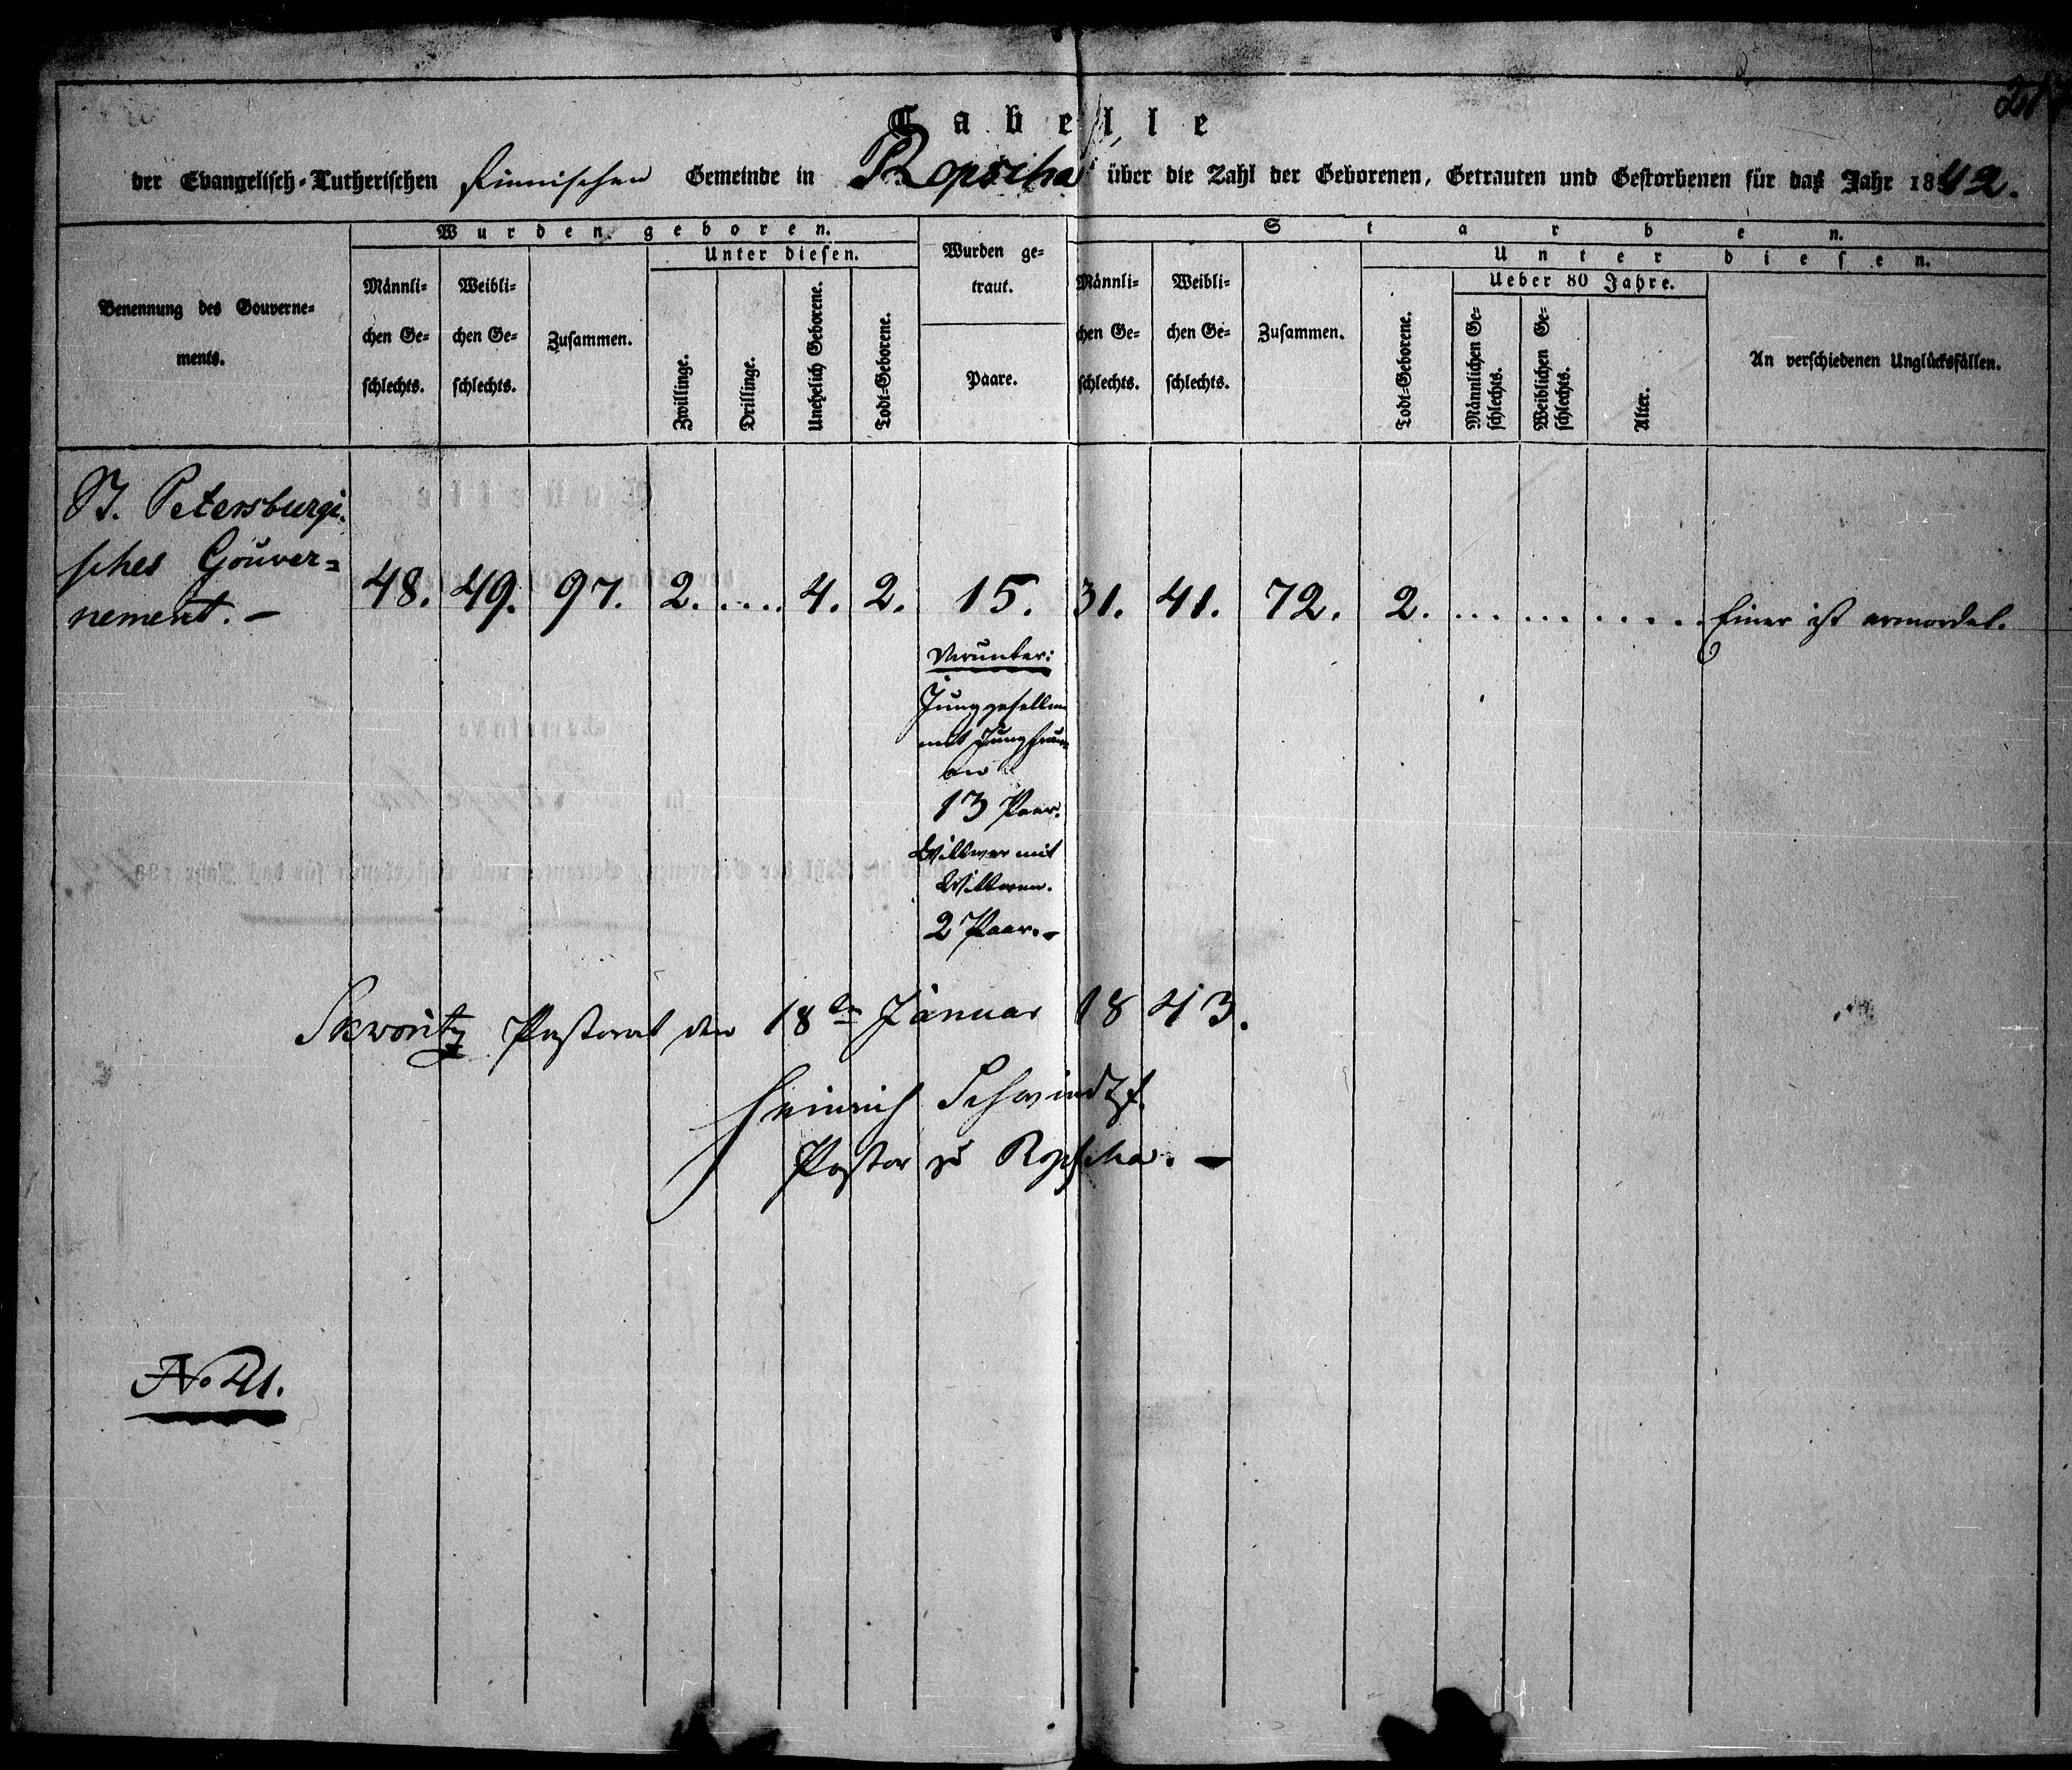 Tabelle
der Evangelisch-Lutherischen finnischen Gemeinde in Ropscha über die Zahl der Geborenen, Getrauten und Gestorbenen für das Jahr 1842.
Benennung des Gouvernements.
Wurden geboren.
Männlichen Geschlechts.
Weiblichen Geschlechts.
Zusammen.
Unter diesen.
Zwillinge.
Drillinge.
Unehelich Geborene.
Todt-Geborene.
Wurden getraut.
Paare.
Starben.
Männlichen Geschlechts.
Weiblichen Geschlechts.
Zusammen.
Unter diesen.
Todt-Geborene.
Ueber 80 Jahre.
Männlichen Geschlechts.
Weiblichen Geschlechts.
Alter.
An verschiedenen Unglücksfällen.
St. Petersburgi-
sches Gouver=
nement. –
48. 49. 97. 2. .... 4. 2. 15. 31. 41. 72. 2. .......... Einer ist ermordet.
Darunter:
Junggesellen
mit Jungfrau-
en
13 Paar.
Wittwer mit
Wittwen.
2 Paar. –
Skworitz Pastorat den 18ten Januar 1843.
Heinrich Schwindt
Pastor zu Ropscha. –
No 21.